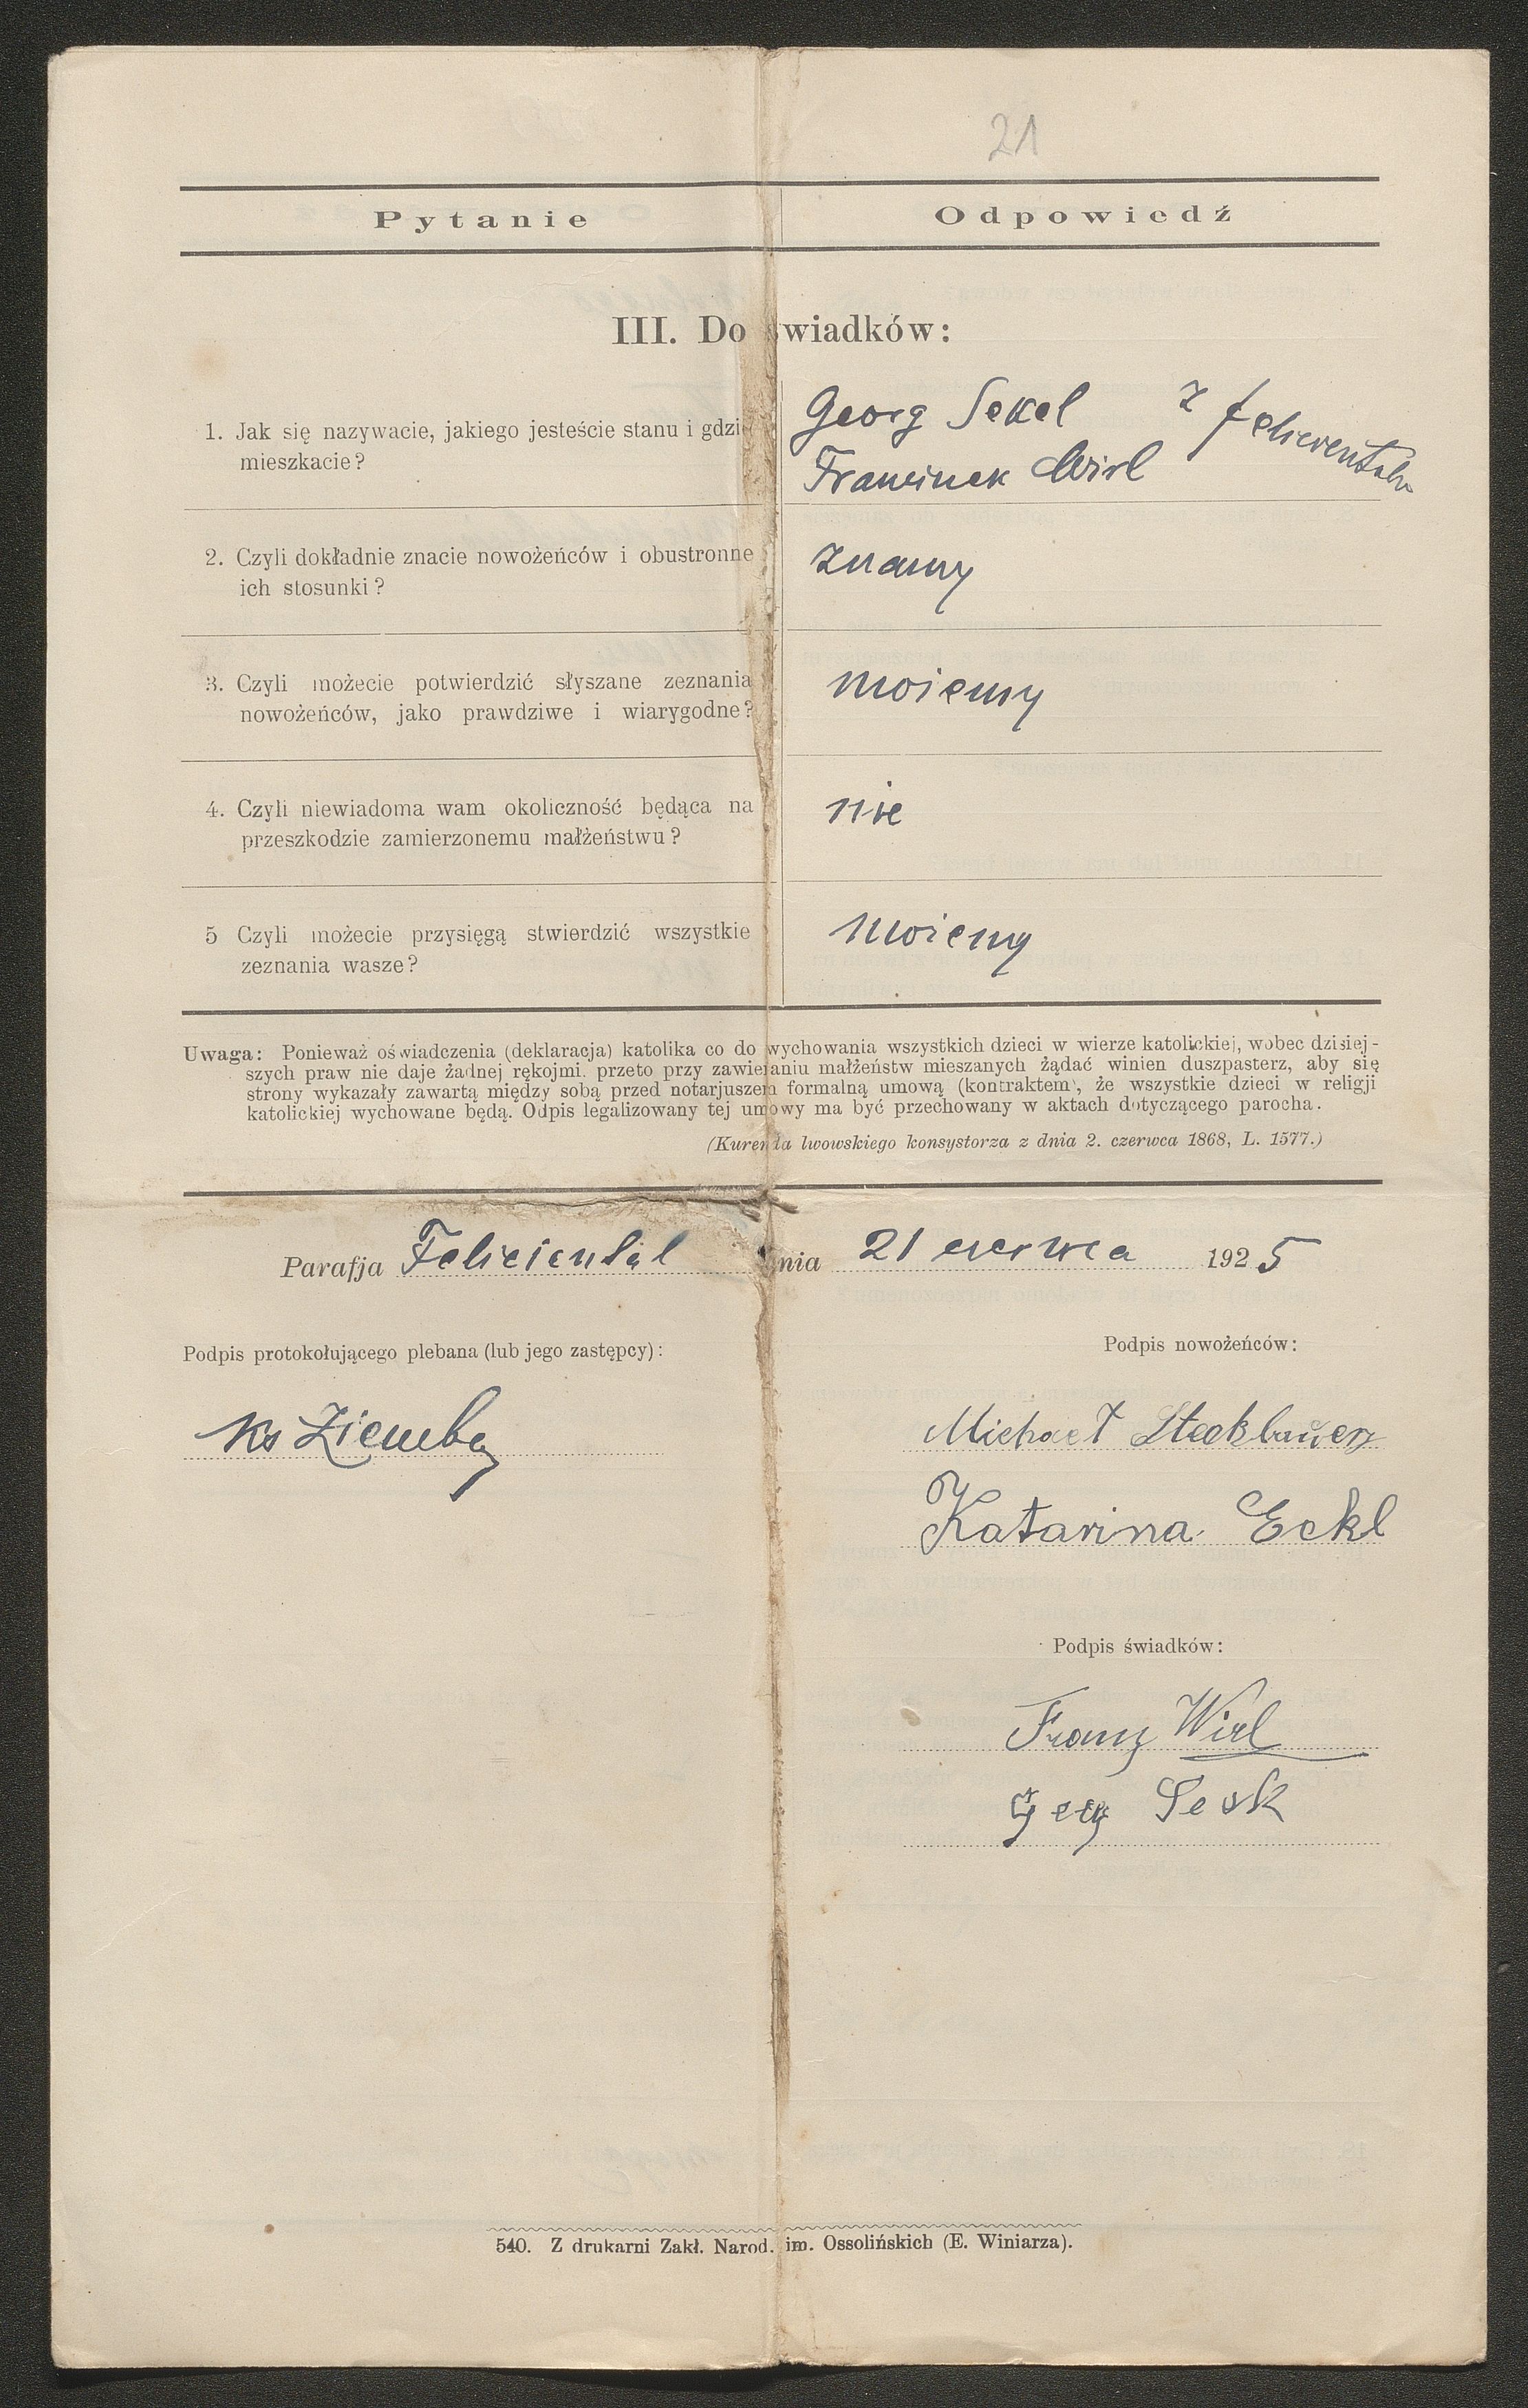 21
Pytanie Odpowiedź
III. Do świadków:
1. Jak się nazywacie, jakiego jesteście stanu i gdzie
mieszkacie?
Georg Sekel z Felicientalu
Franciszek Wirl
2. Czyli dokładnie znacie nowożeńców i obustronne
ich stosunki?
znamy
3. Czyli możecie potwierdzić słyszane zeznania
nowożeńców, jako prawdziwe i wiarygodne?
możemy
4. Czyli niewiadoma wam okoliczność będąca na
przeszkodzie zamierzonemu małżeństwu?
nie
5 Czyli możecie przysięgą stwierdzić wszystkie
zeznania wasze?
możemy
Uwaga: Ponieważ oświadczenia (deklaracja) katolika co do wychowania wszystkich dzieci w wierze katolickiej, wobec dzisiej-
szych praw nie daje żadnej rękojmi. przeto przy zawieraniu małżeństw mieszanych żądać winien duszpasterz, aby się
strony wykazały zawartą między sobą przed notarjuszem formalną umową (kontraktem), że wszystkie dzieci w religji
katolickiej wychowane będą. Odpis legalizowany tej umowy ma być przechowany w aktach dotyczącego parocha.
(Kurenda lwowskiego konsystorza z dnia 2. czerwca 1868, L. 1577.)
Parafja Feliciental dnia 21 czerwca 1925
Podpis protokołującego plebana (lub jego zastępcy): Podpis nowożeńców:
Ks Ziemba
Michael Steckbauer
Katarina Eckl
Podpis świadków:
Franz Wirl
540. Z drukarni Zakł. Narod. im. Ossolińskich (E. Winiarza).